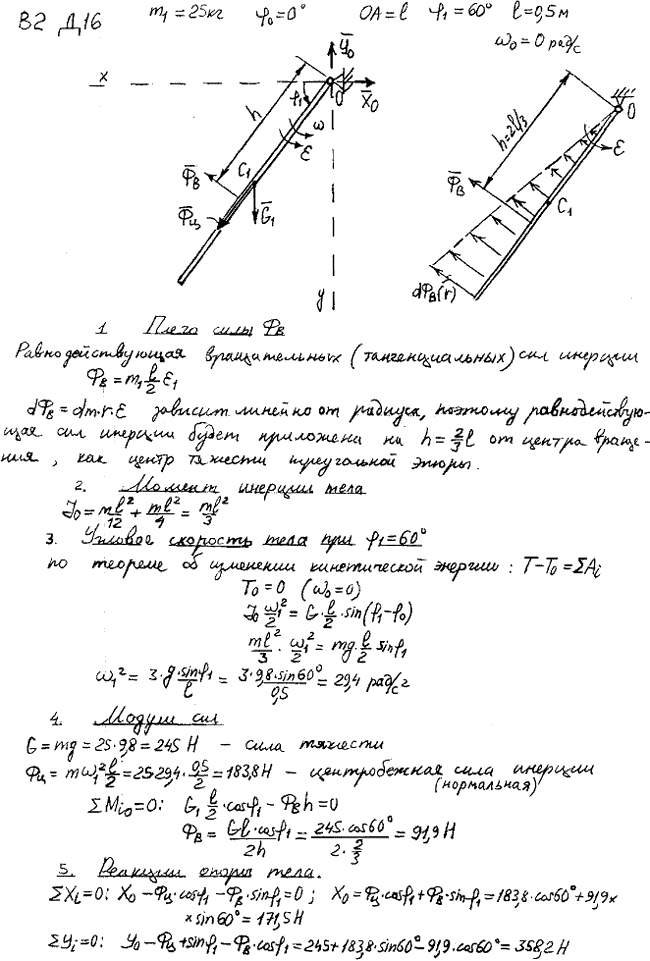 В2 Д16 m₁ = 25кг φ₀ = 0° OA = l φ₁ = 60° l = 0,5м
ω₀ = 0 рад/с
x
Ȳ₀
O
X̄₀
φ₁
h
ω
ε
Φ̄в
C₁
Φ̄ц
Ḡ₁
y
h=2l/3
O
ε
Φ̄в
C₁
dΦ̄в(r̄)
1 Плечо силы Φв
Равнодействующая вращительных (тангенциальных) сил инерции
Φв = m₁ l/2 ε₁
dΦв = dm·r·ε зависит линейно от радиуса, поэтому равнодействую-
щая сил инерции будет приложена на h = 2/3 l от центра враще-
ния, как центр тяжести треугольной эпюры.
2. Момент инерции тела
J₀ = ml²/12 + ml²/4 = ml²/3
3. Угловая скорость тела при φ₁=60°
по теореме об изменении кинетической энергии: T-T₀ = ΣAᵢ
T₀ = 0 (ω₀=0)
J₀ ω₁²/2 = G·l/2·sin(φ₁-φ₀)
ml²/3 · ω₁²/2 = mg·l/2 sinφ₁
ω₁² = 3·g·sinφ₁/l = 3·9,8·sin60°/0,5 = 29,4 рад/с²
4. Модули сил
G = mg = 25·9,8 = 245 Н – сила тяжести
Φц = mω₁² l/2 = 25·29,4·0,5/2 = 183,8Н – центробежная сила инерции
(нормальная)
ΣMᵢ₀=0: G₁ l/2·cosφ₁ - Φв h = 0
Φв = Gl·cosφ₁/2h = 245·cos60°/2·2/3 = 91,9 Н
5. Реакции опоры тела.
ΣXᵢ=0: X₀ - Φц·cosφ₁ - Φв·sinφ₁=0; X₀ = Φц·cosφ₁+Φв·sinφ₁ = 183,8·cos60°+91,9×
×sin60° = 171,5Н
ΣYᵢ=0: Y₀ - Φц+sinφ₁ - Φв·cosφ₁ = 245+183,8·sin60°-91,9·cos60° = 358,2 Н